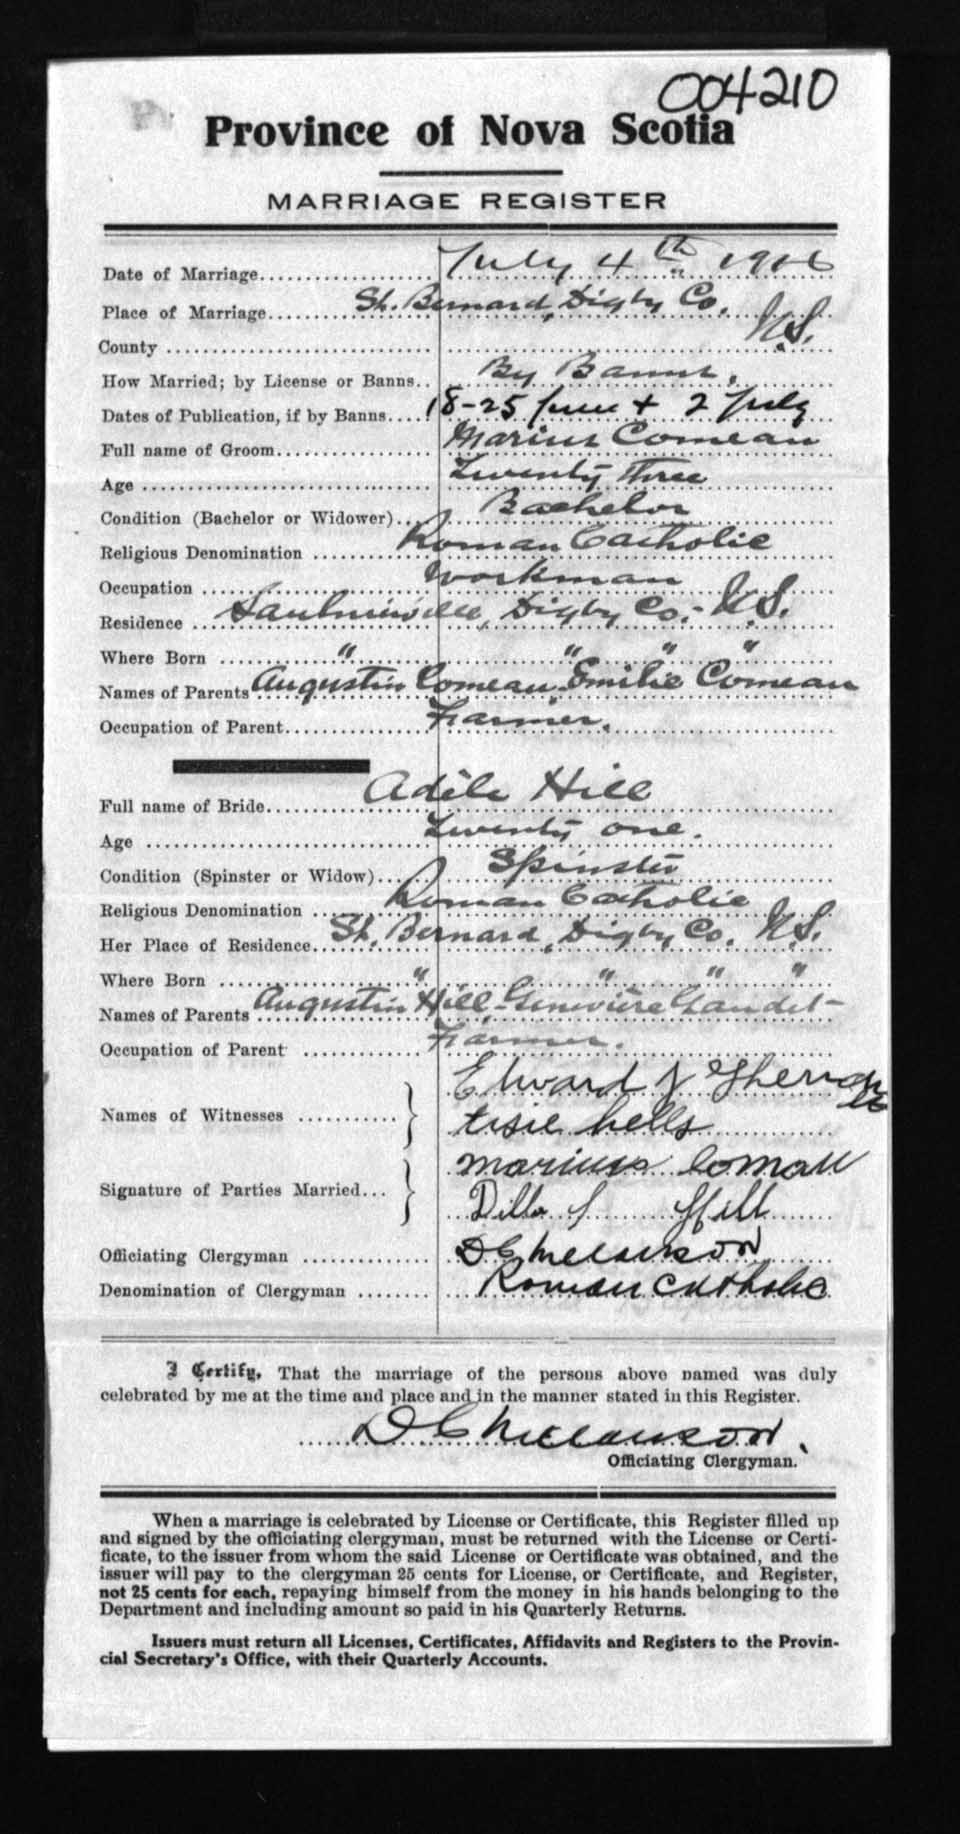 004210
Province of Nova Scotia
MARRIAGE REGISTER
Date of Marriage July 4th 1916
Place of Marriage St. Bernard, Digby Co. N.S.
County
How Married; by License or Banns.. By Banns.
Dates of Publication, if by Banns.... 18-25 June + 2 July
Full name of Groom Marius Comeau
Age Twenty three
Condition (Bachelor or Widower).. Bachelor
Religious Denomination Roman Catholic
Occupation Workman
Residence Saulnierville, Digby Co. N.S.
Where Born " " " "
Names of Parents Augustin Comeau, Emilie Comeau
Occupation of Parent Farmer.
Full name of Bride Adèle Hill
Age Twenty one.
Condition (Spinster or Widow) Spinster
Religious Denomination Roman Catholic
Her Place of Residence St. Bernard, Digby Co. N.S.
Where Born " " " "
Names of Parents Augustin Hill - Genevière Gaudet
Occupation of Parent Farmer.
Names of Witnesses Edward J
Signature of Parties Married... Marius Comau
Hill
Officiating Clergyman D C Melanson
Denomination of Clergyman Roman Catholic
I Certify, That the marriage of the persons above named was duly
celebrated by me at the time and place and in the manner stated in this Register.
D C Melanson.
Officiating Clergyman.
When a marriage is celebrated by License or Certificate, this Register filled up
and signed by the officiating clergyman, must be returned with the License or Certi-
ficate, to the issuer from whom the said License or Certificate was obtained, and the
issuer will pay to the clergyman 25 cents for License, or Certificate, and Register,
not 25 cents for each, repaying himself from the money in his hands belonging to the
Department and including amount so paid in his Quarterly Returns.
Issuers must return all Licenses, Certificates, Affidavits and Registers to the Provin-
cial Secretary's Office, with their Quarterly Accounts.